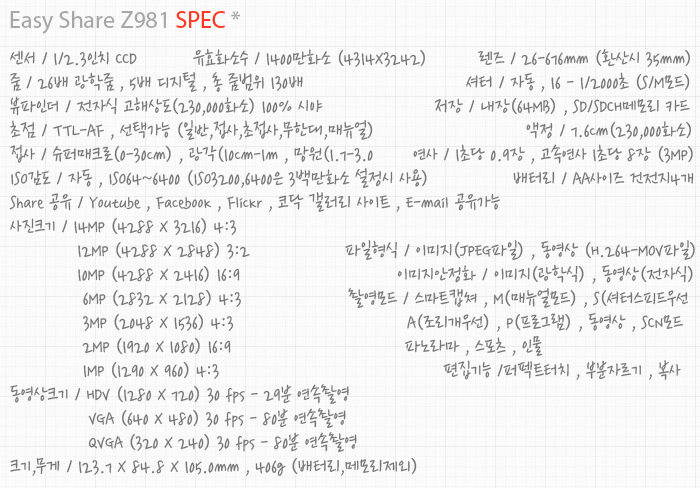 Easy Share Z981 SPEC *
센서 / 1/2.3인치 CCD 유효화소수 / 1400만화소 (4314X3242) 렌즈 / 26-676mm (환산시 35mm)
줌 / 26배 광학줌 , 5배 디지털 , 총 줌범위 130배 셔터 / 자동 , 16 - 1/2000초 (S/M모드)
뷰파인더 / 전자식 고해상도(230,000화소) 100% 시야 저장 / 내장(64MB) , SD/SDCH메모리 카드
초점 / TTL-AF , 선택가능 (일반,접사,초접사,무한대,매뉴얼) 액정 / 7.6cm(230,000화소)
접사 / 슈퍼매크로(0-30cm) , 광각(10cm-1m , 망원(1.7-3.0 연사 / 1초당 0.9장 , 고속연사 1초당 8장 (3MP)
ISO감도 / 자동 , ISO64~6400 (ISO3200,6400은 3백만화소 설정시 사용) 배터리 / AA사이즈 건전지4개
Share 공유 / Youtube , Facebook , Flickr , 코닥 갤러리 사이트 , E-mail 공유가능
사진크기 / 14MP (4288 X 3216) 4:3
12MP (4288 X 2848) 3:2 파일형식 / 이미지(JPEG파일) , 동영상 (H.264-MOV파일)
10MP (4288 X 2416) 16:9 이미지안정화 / 이미지(광학식) , 동영상(전자식)
6MP (2832 X 2128) 4:3 촬영모드 / 스마트캡쳐 , M(매뉴얼모드) , S(셔터스피드우선
3MP (2048 X 1536) 4:3 A(조리개우선) , P(프로그램) , 동영상 , SCN모드
2MP (1920 X 1080) 16:9 파노라마 , 스포츠 , 인물
1MP (1290 X 960) 4:3 편집기능 /퍼펙트터치 , 부분자르기 , 복사
동영상크기 / HDV (1280 X 720) 30 fps - 29분 연속촬영
VGA (640 X 480) 30 fps - 80분 연속촬영
QVGA (320 X 240) 30 fps - 80분 연속촬영
크기,무게 / 123.7 X 84.8 X 105.0mm , 406g (배터리,메모리제외)